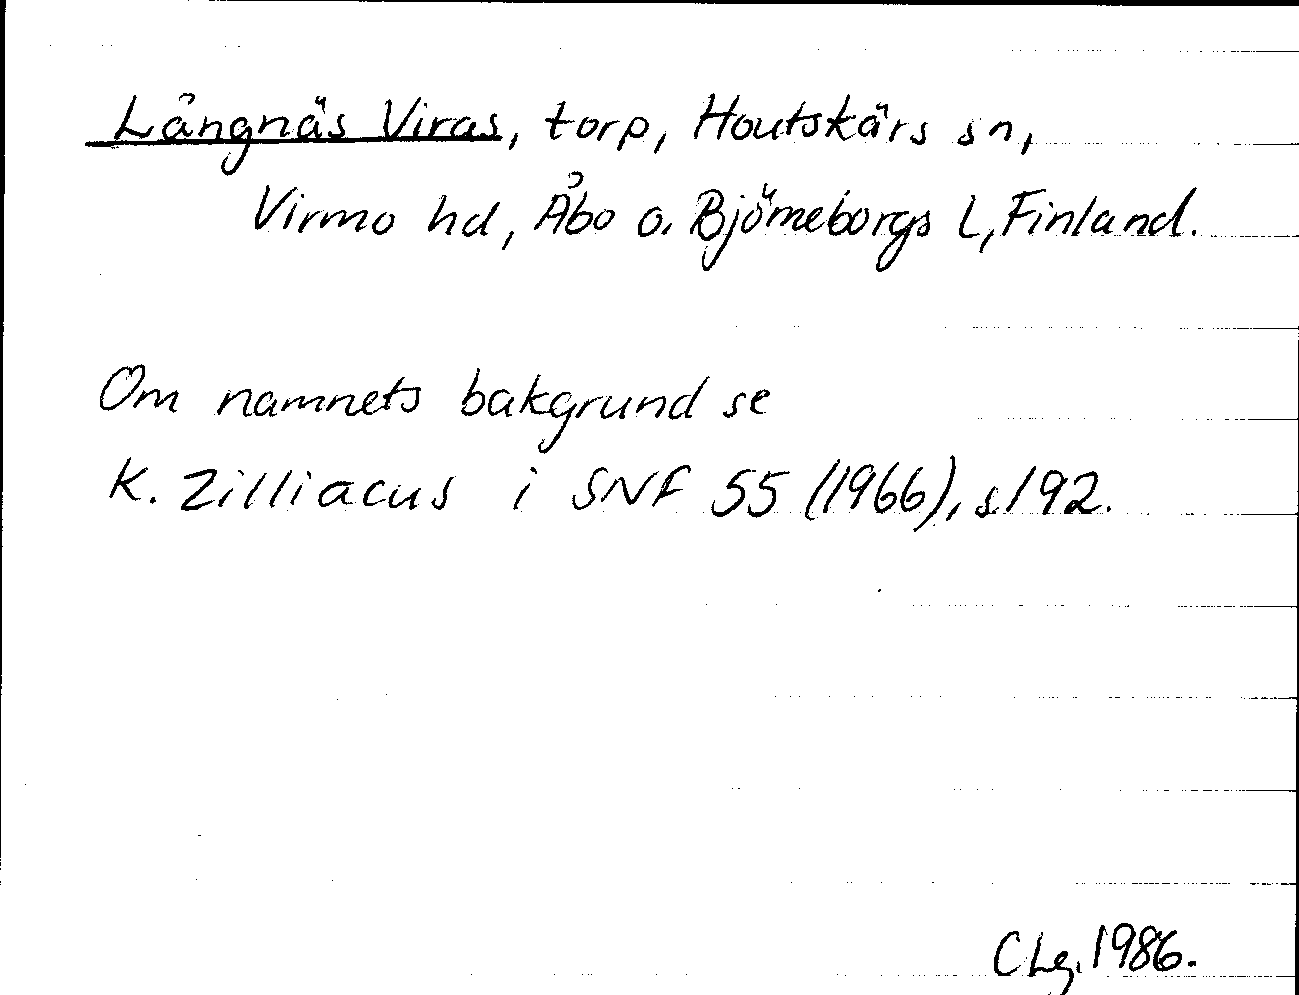 Långnäs Viras, torp, Houtskärs sn,
Virmo hd, Åbo o. Björneborgs L, Finland.
Om namnets bakgrund se
K. Zilliacus i SNF 55 (1966), s.192.
CLg. 1986.